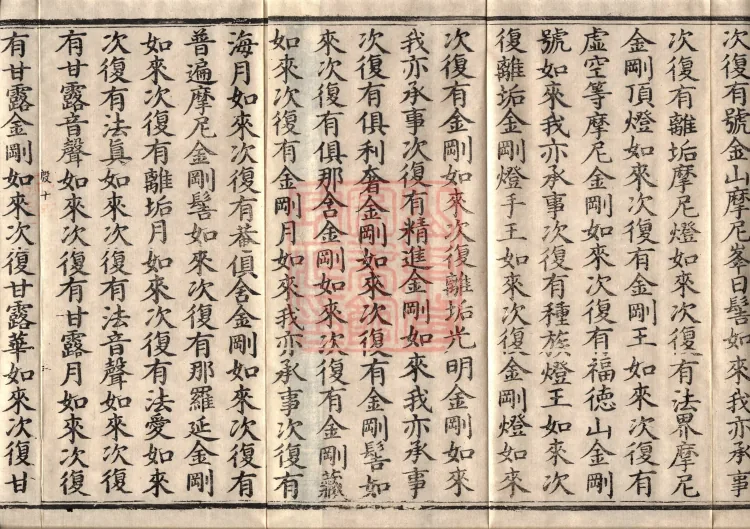 次復有號金山摩尼峯日髻如來我亦承事
次復有離垢摩尼燈如來次復有法界摩尼
金剛頂燈如來次復有金剛王如來次復有
虛空等摩尼金剛如來次復有福德山金剛
號如來我亦承事次復有種族燈王如來次
復離垢金剛燈手王如來次復金剛燈如來
次復有金剛如來次復離垢光明金剛如來
我亦承事次復有精進金剛如來我亦承事
次復有俱利奢金剛如來次復有金剛髻如
來次復有俱那舍金剛如來次復有金剛藏
如來次復有金剛月如來我亦承事次復有
海月如來次復有菴俱舍金剛如來次復有
普遍摩尼金剛髻如來次復有那羅延金剛
如來次復有離垢月如來次復有法愛如來
次復有法真如來次復有法音聲如來次復
有甘露音聲如來次復有甘露月如來次復
殷十
有甘露金剛如來次復甘露華如來次復甘